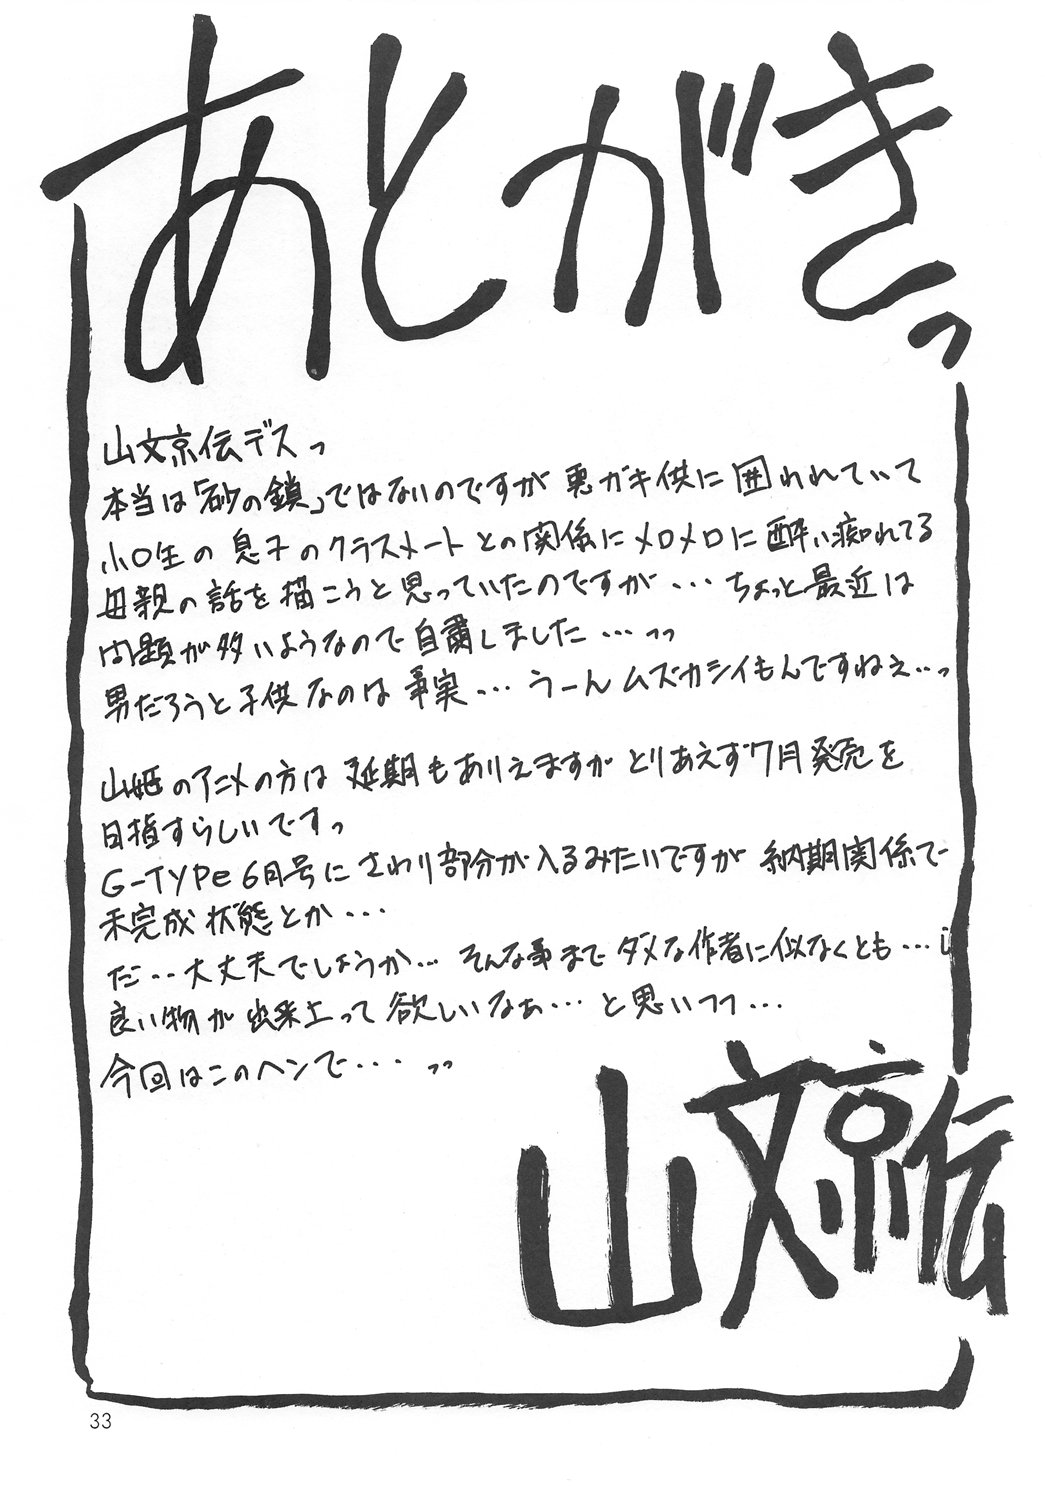 あとがきっ
山文京伝デスっ
本当は「砂の鎖」ではないのですが悪ガキ供に囲われていて
小○生の息子のクラスメートとの関係にメロメロに酔い痴れてる
母親の話を描こうと思っていたのですが・・・ちょっと最近は
問題が多いようなので自粛しました・・・っっ
男だろうと子供なのは事実・・・うーんムズカシイもんですねぇ・・っ
山姫のアニメの方は延期もありえますがとりあえず7月発売を
目指すらしいですっ
G-TYPe 6月号にさわり部分が入るみたいですが納期関係で
未完成状態とか・・・
だ・・大丈夫でしょうか・・・そんな事までダメな作者に似なくとも・・・
良い物が出来上って欲しいなぁ・・・と思いつつ・・・
今回はこのヘンで・・・っっ
山文京伝
33